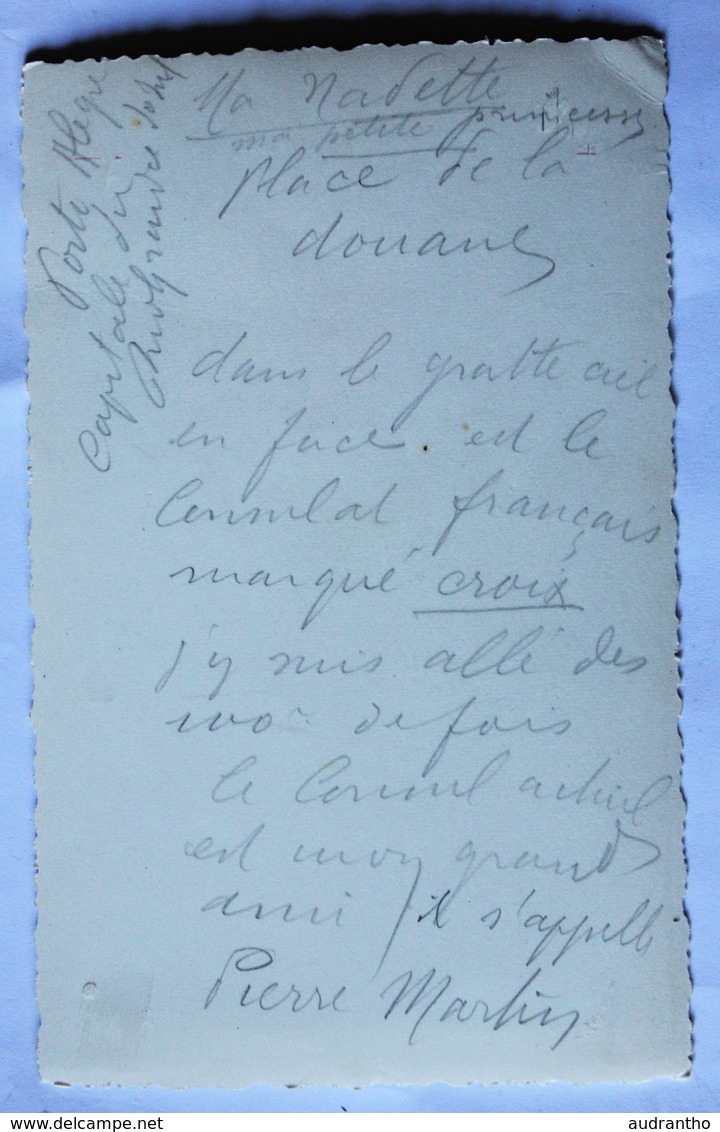 Porto Alegre
Capitale du
Rio Grande do Sul
Ma Nadette
ma petite princesse
place de la
douane
dans le gratte ciel
en face est le
Consulat français
marqué croix
j'y suis allé des
de fois
le Consul actuel
est mon grand
ami il s'appelle
Pierre Martin
audrantho